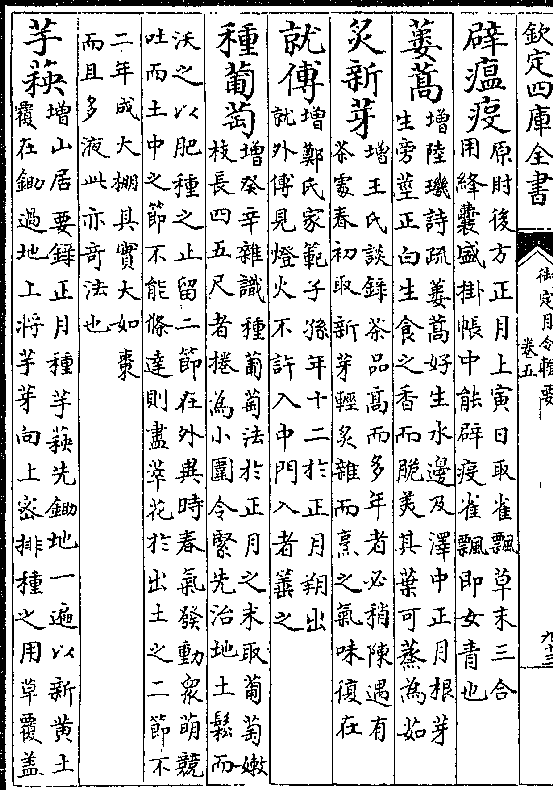 欽定四庫全書
御定月令輯要
卷五
辟瘟疫
原肘後方正月上寅日取雀瓢草末三合
用絳囊盛掛帳中能辟疫雀瓢即女青也
蔞蒿
增陸璣詩疏蔞蒿好生水邊及澤中正月根芽
生旁莖正白生食之香而脆美其葉可蒸為茹
炙新芽
增王氏談録茶品髙而多年者必稍陳遇有
茶處春初取新芽輕炙雜而烹之氣味復在
就傅
增鄭氏家範子孫年十二於正月朔出
就外傅見燈火不許入中門入者箠之
種葡萄
增癸辛雜識種葡萄法於正月之末取葡萄嫩
枝長四五尺者捲為小圈令緊先治地土鬆而
沃之以肥種之止留二節在外異時春氣發動衆萌競
吐而土中之節不能條達則盡萃花於出土之二節不
二年成大棚其實大如棗
而且多液此亦竒法也
芋蒛
增山居要録正月種芋蒛先鋤地一遍以新黄土
覆在鋤過地上將芋芽向上宻排種之用草覆盖